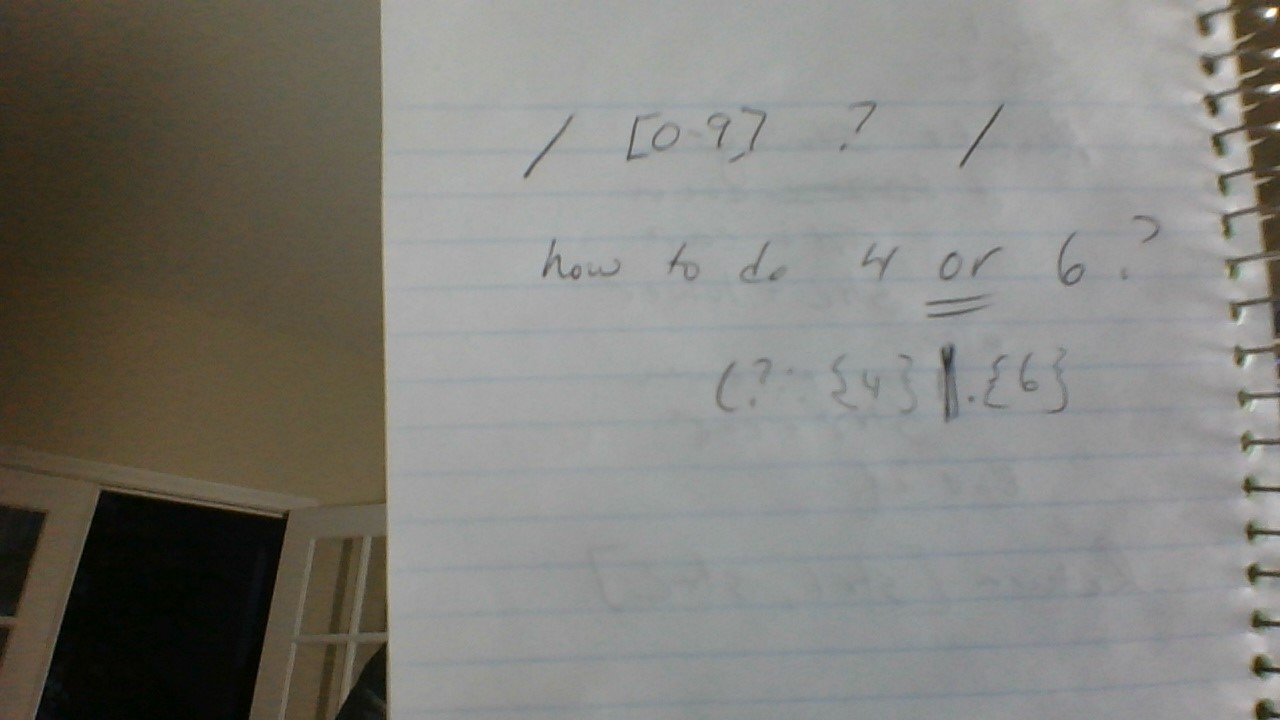 / [0-9] ? /
how to do 4 or 6?
(?: {4}|.{6}